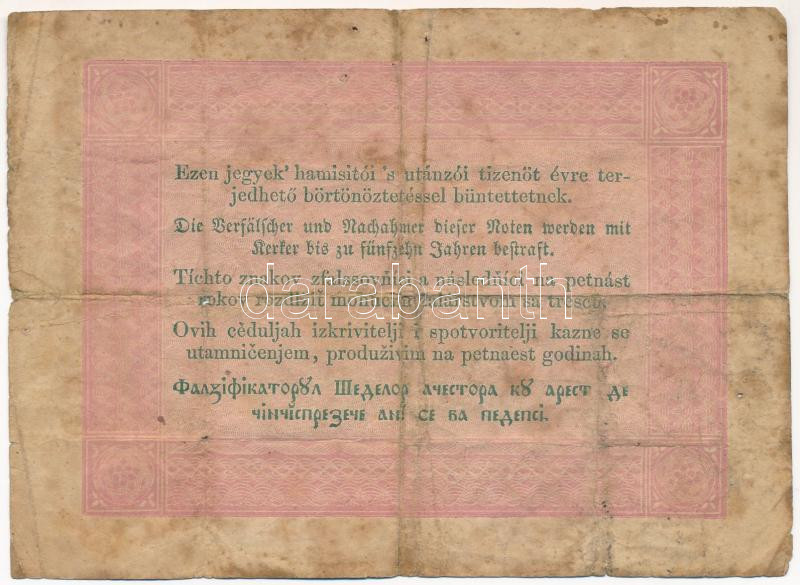 Ezen jegyek' hamisitói 's utánzói tizenöt évre ter-
jedhető börtönöztetéssel büntettetnek.
Die Verfälscher und Nachahmer dieser Noten werden mit
Kerker bis zu fünfzehn Jahren bestraft.
Tíchto znakov zfalšovňíci a následňíci na petnást
rokov
darabanth
Ovih cèduljah izkrivitelji i spotvoritelji kazne se
utamničenjem, produživim na petnaest godinah.
Фалꙁіфікаторꙋл Шеделор ачестора кꙋ арест де
чінчіспреꙁече ані се ва педепсі.